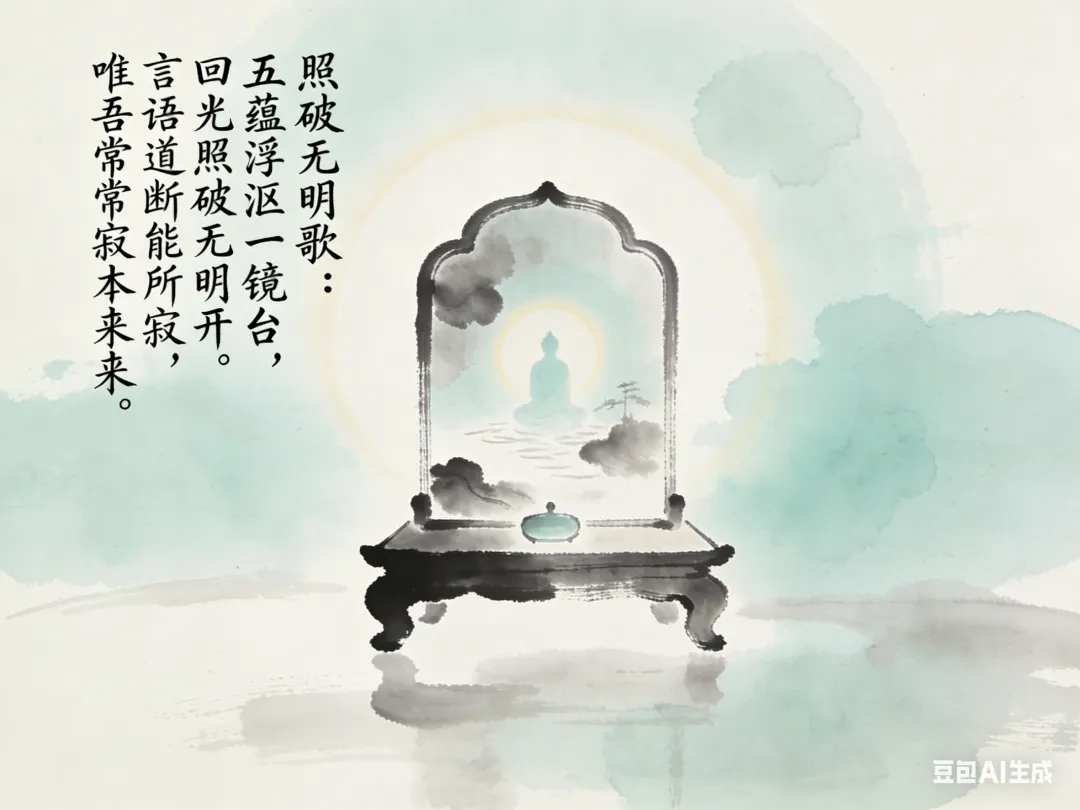 照破无明歌：
五蕴浮沤一镜台，
回光照破无明开。
言语道断能所寂，
唯吾常常寂本来来。
豆包AI生成